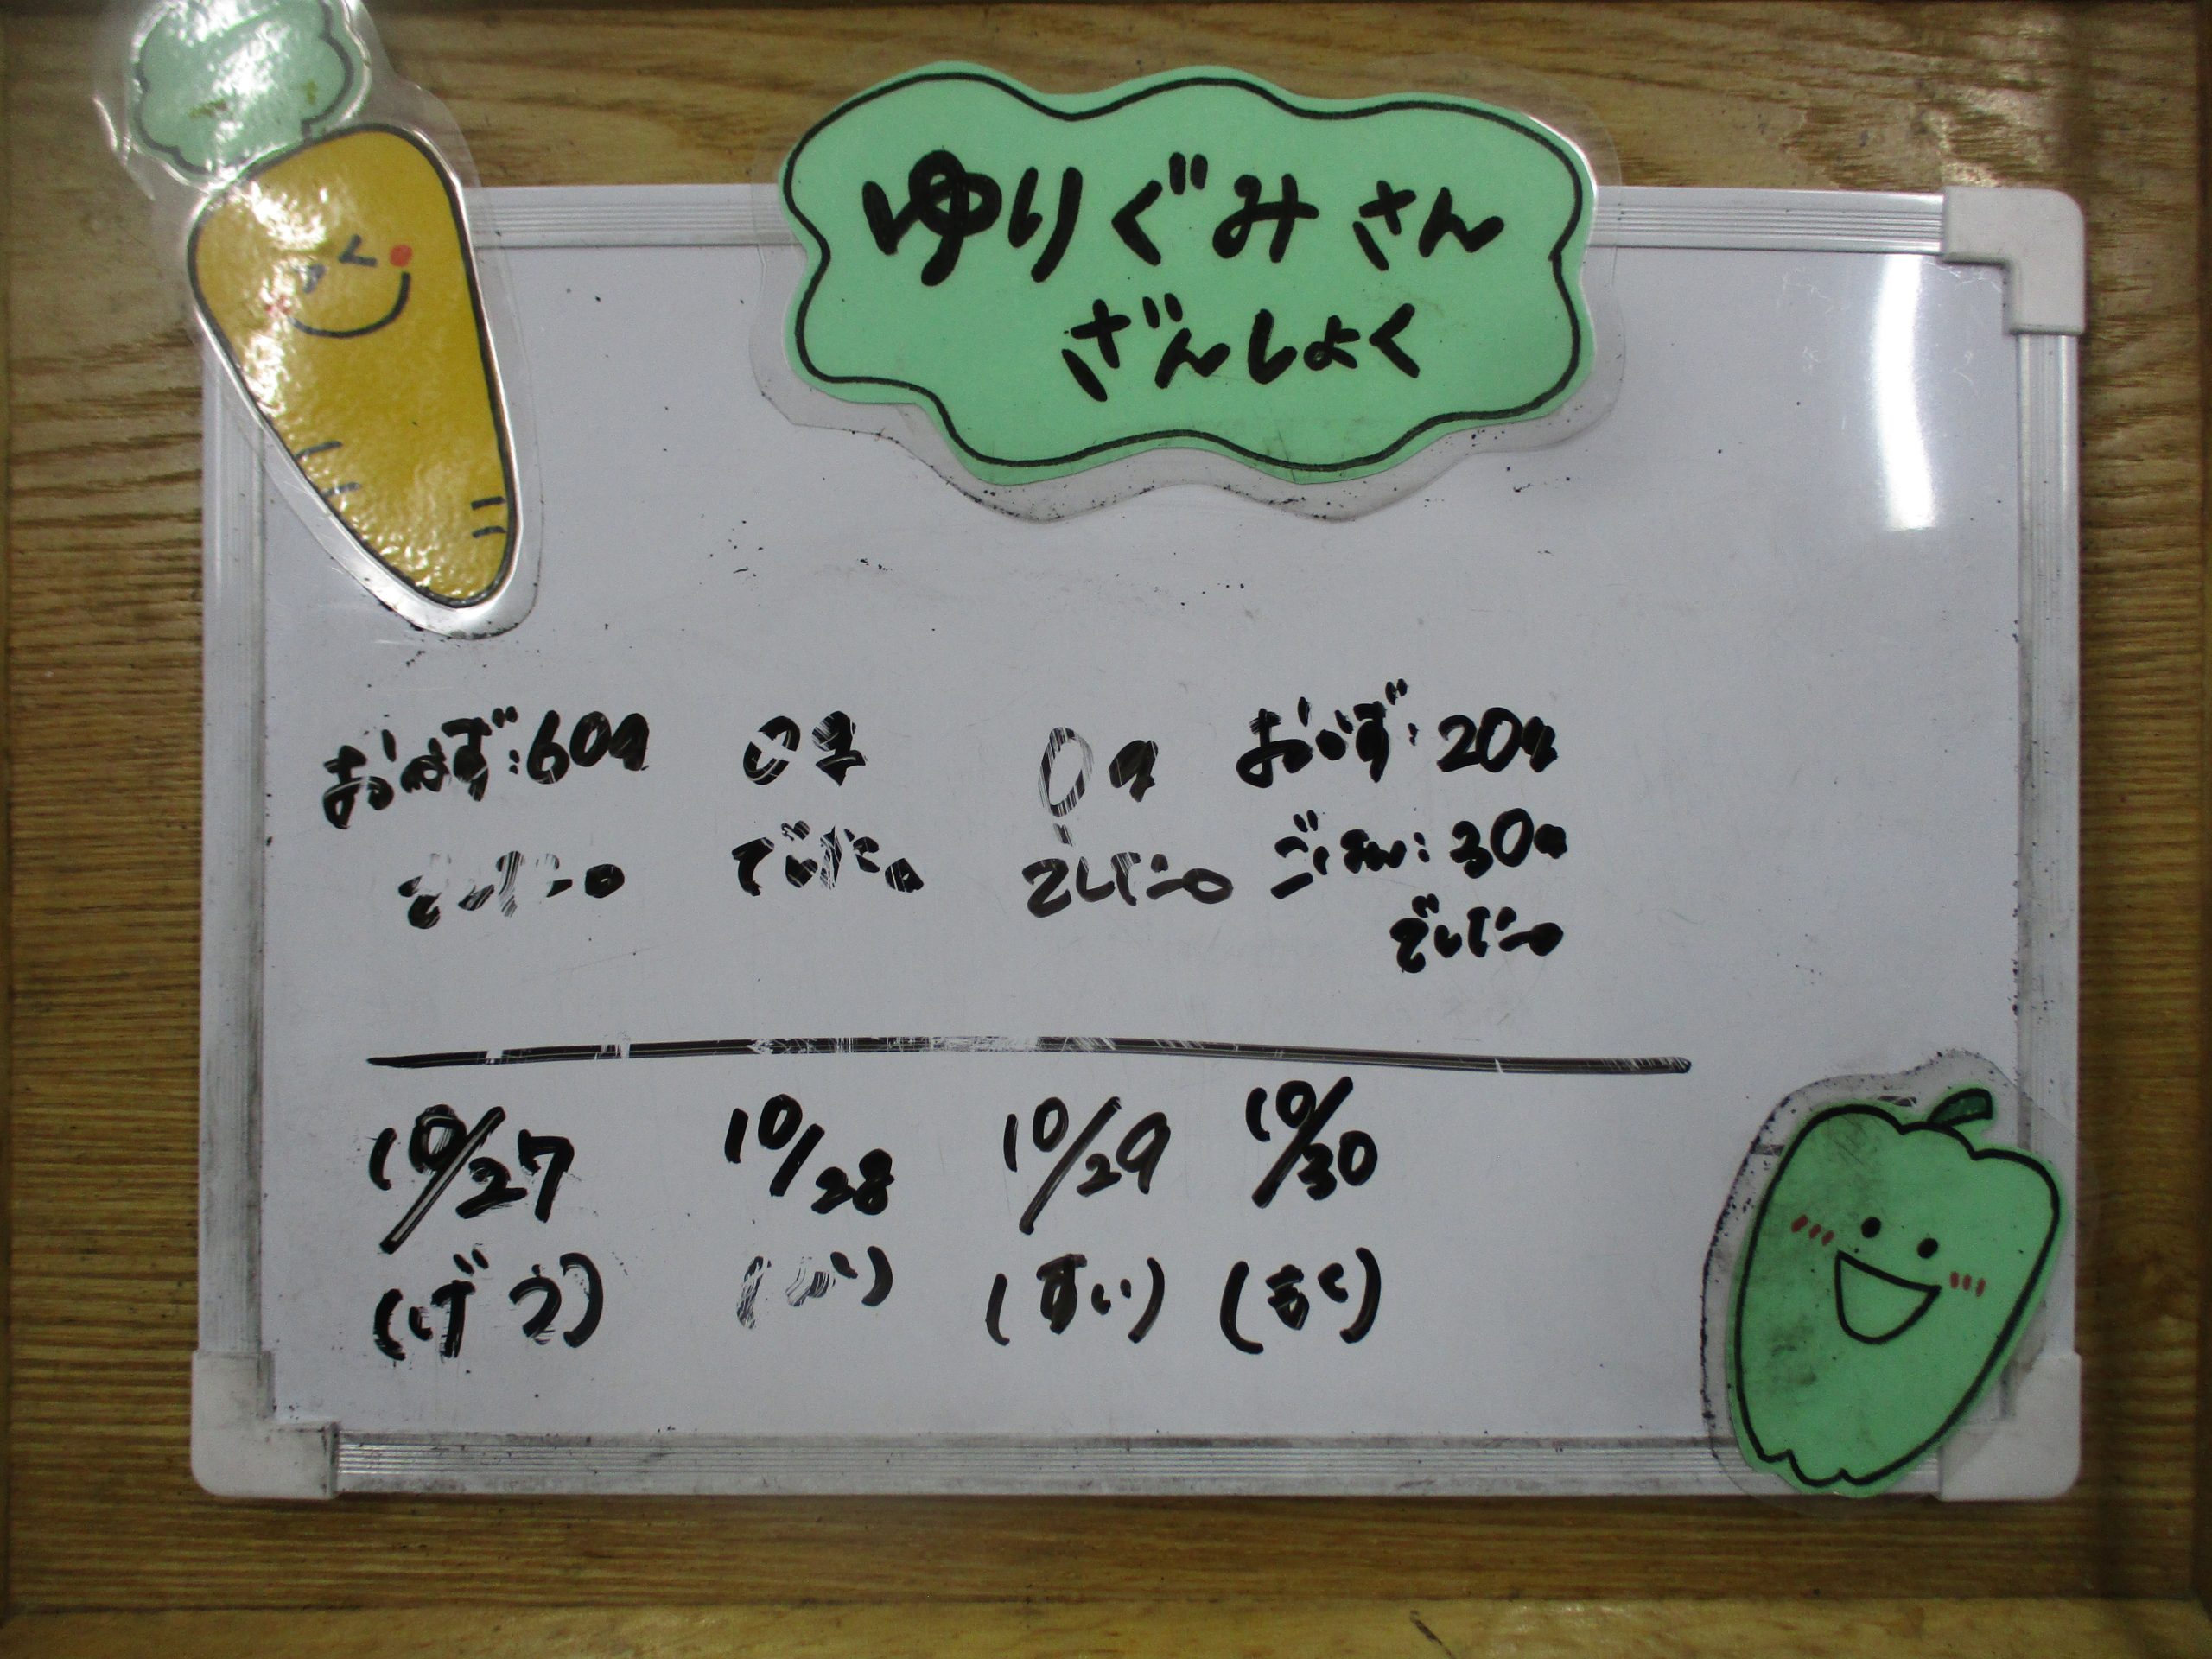 ゆりぐみさん
ざんしょく
おかず:60g
でした。
0g
でした。
0g
でした。
おかず:20g
ごはん:30g
でした。
10/27
(げつ)
10/28
(か)
10/29
(すい)
10/30
(もく)